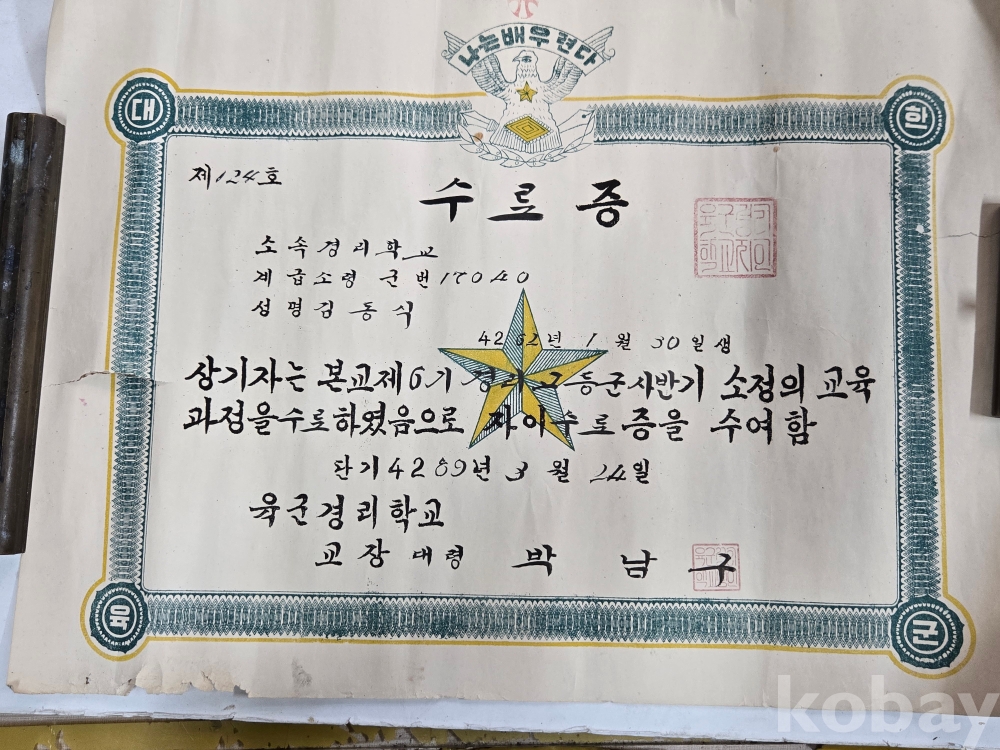 나는배우련다
대 한
제124호
수료증
소속경리학교
계급소령 군번17040
성명김동식
4262년 1월 30일생
상기자는 본교제6기 경리고등군사반기 소정의 교육
과정을수료하였음으로 자이수료증을 수여함
단기4289년 3월 24일
육군경리학교
교장 대령 박남구
육 군
kobay